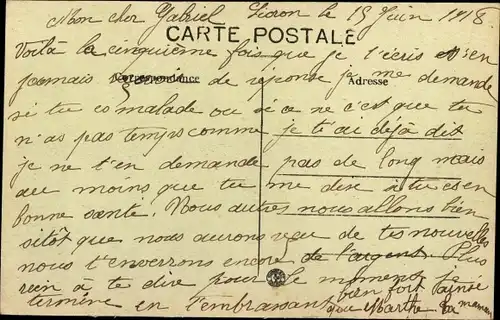 Mon cher Gabriel Lioron le 15 Juin 1918
CARTE POSTALE
Voilà la cinquième fois que je t'écris et sen
jamais de réponse je me demande
Correspondance Adresse
si tu es malade ou si ce ne c'est que tu
n'as pas temps comme je t'ai déjà dit
je ne t'en demande pas de long mais
au moins que tu me dise si tu es en
bonne santé. Nous autres nous allons bien
sitôt que nous aurons reçu de tes nouvelles
nous t'enverrons encore de l'argent. Plus
rein à te dire pour le moment je
termine en t'embrassant bien fort ainsi
que Marthe ta maman